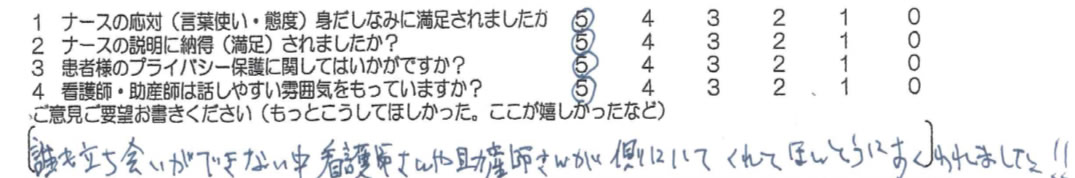 1 ナースの応対（言葉使い・態度）身だしなみに満足されましたか 5 4 3 2 1 0
2 ナースの説明に納得（満足）されましたか？ 5 4 3 2 1 0
3 患者様のプライバシー保護に関してはいかがですか？ 5 4 3 2 1 0
4 看護師・助産師は話しやすい雰囲気をもっていますか？ 5 4 3 2 1 0
ご意見ご要望お書きください（もっとこうしてほしかった。ここが嬉しかったなど）
誰も立ち会いができない中 看護師さんや助産師さんが 側にいて くれて ほんとうにすくわれました!!